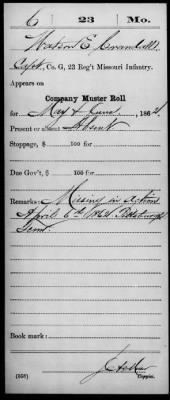 6 23 Mo.
Watson E. Crandall
Capt., Co. G, 23 Reg't Missouri Infantry.
Appears on
Company Muster Roll
for May & June, 1862.
Present or absent Absent
Stoppage, $ 100 for
Due Gov't, $ 100 for
Remarks: Missing in action
April 6th 1862 Pittsburgh
Tenn.
Book mark:
(358)
Copyist.